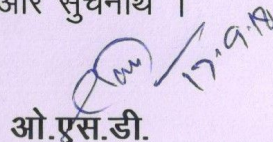 और सूचनार्थ ।
17.9.18
ओ.एस.डी.